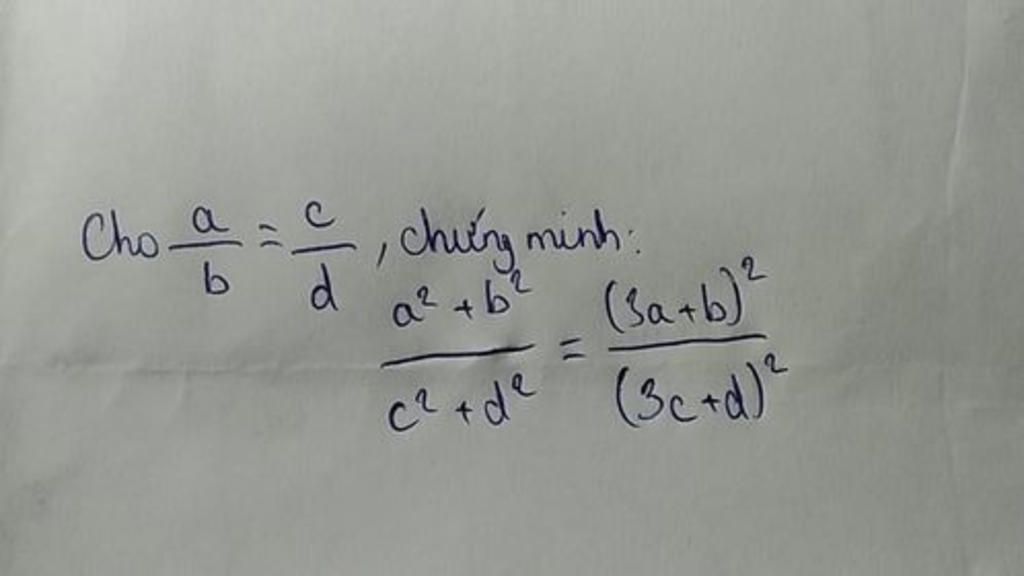 Cho a/b = c/d, chứng minh:
(a² + b²)/(c² + d²) = (3a+b)²/(3c+d)²